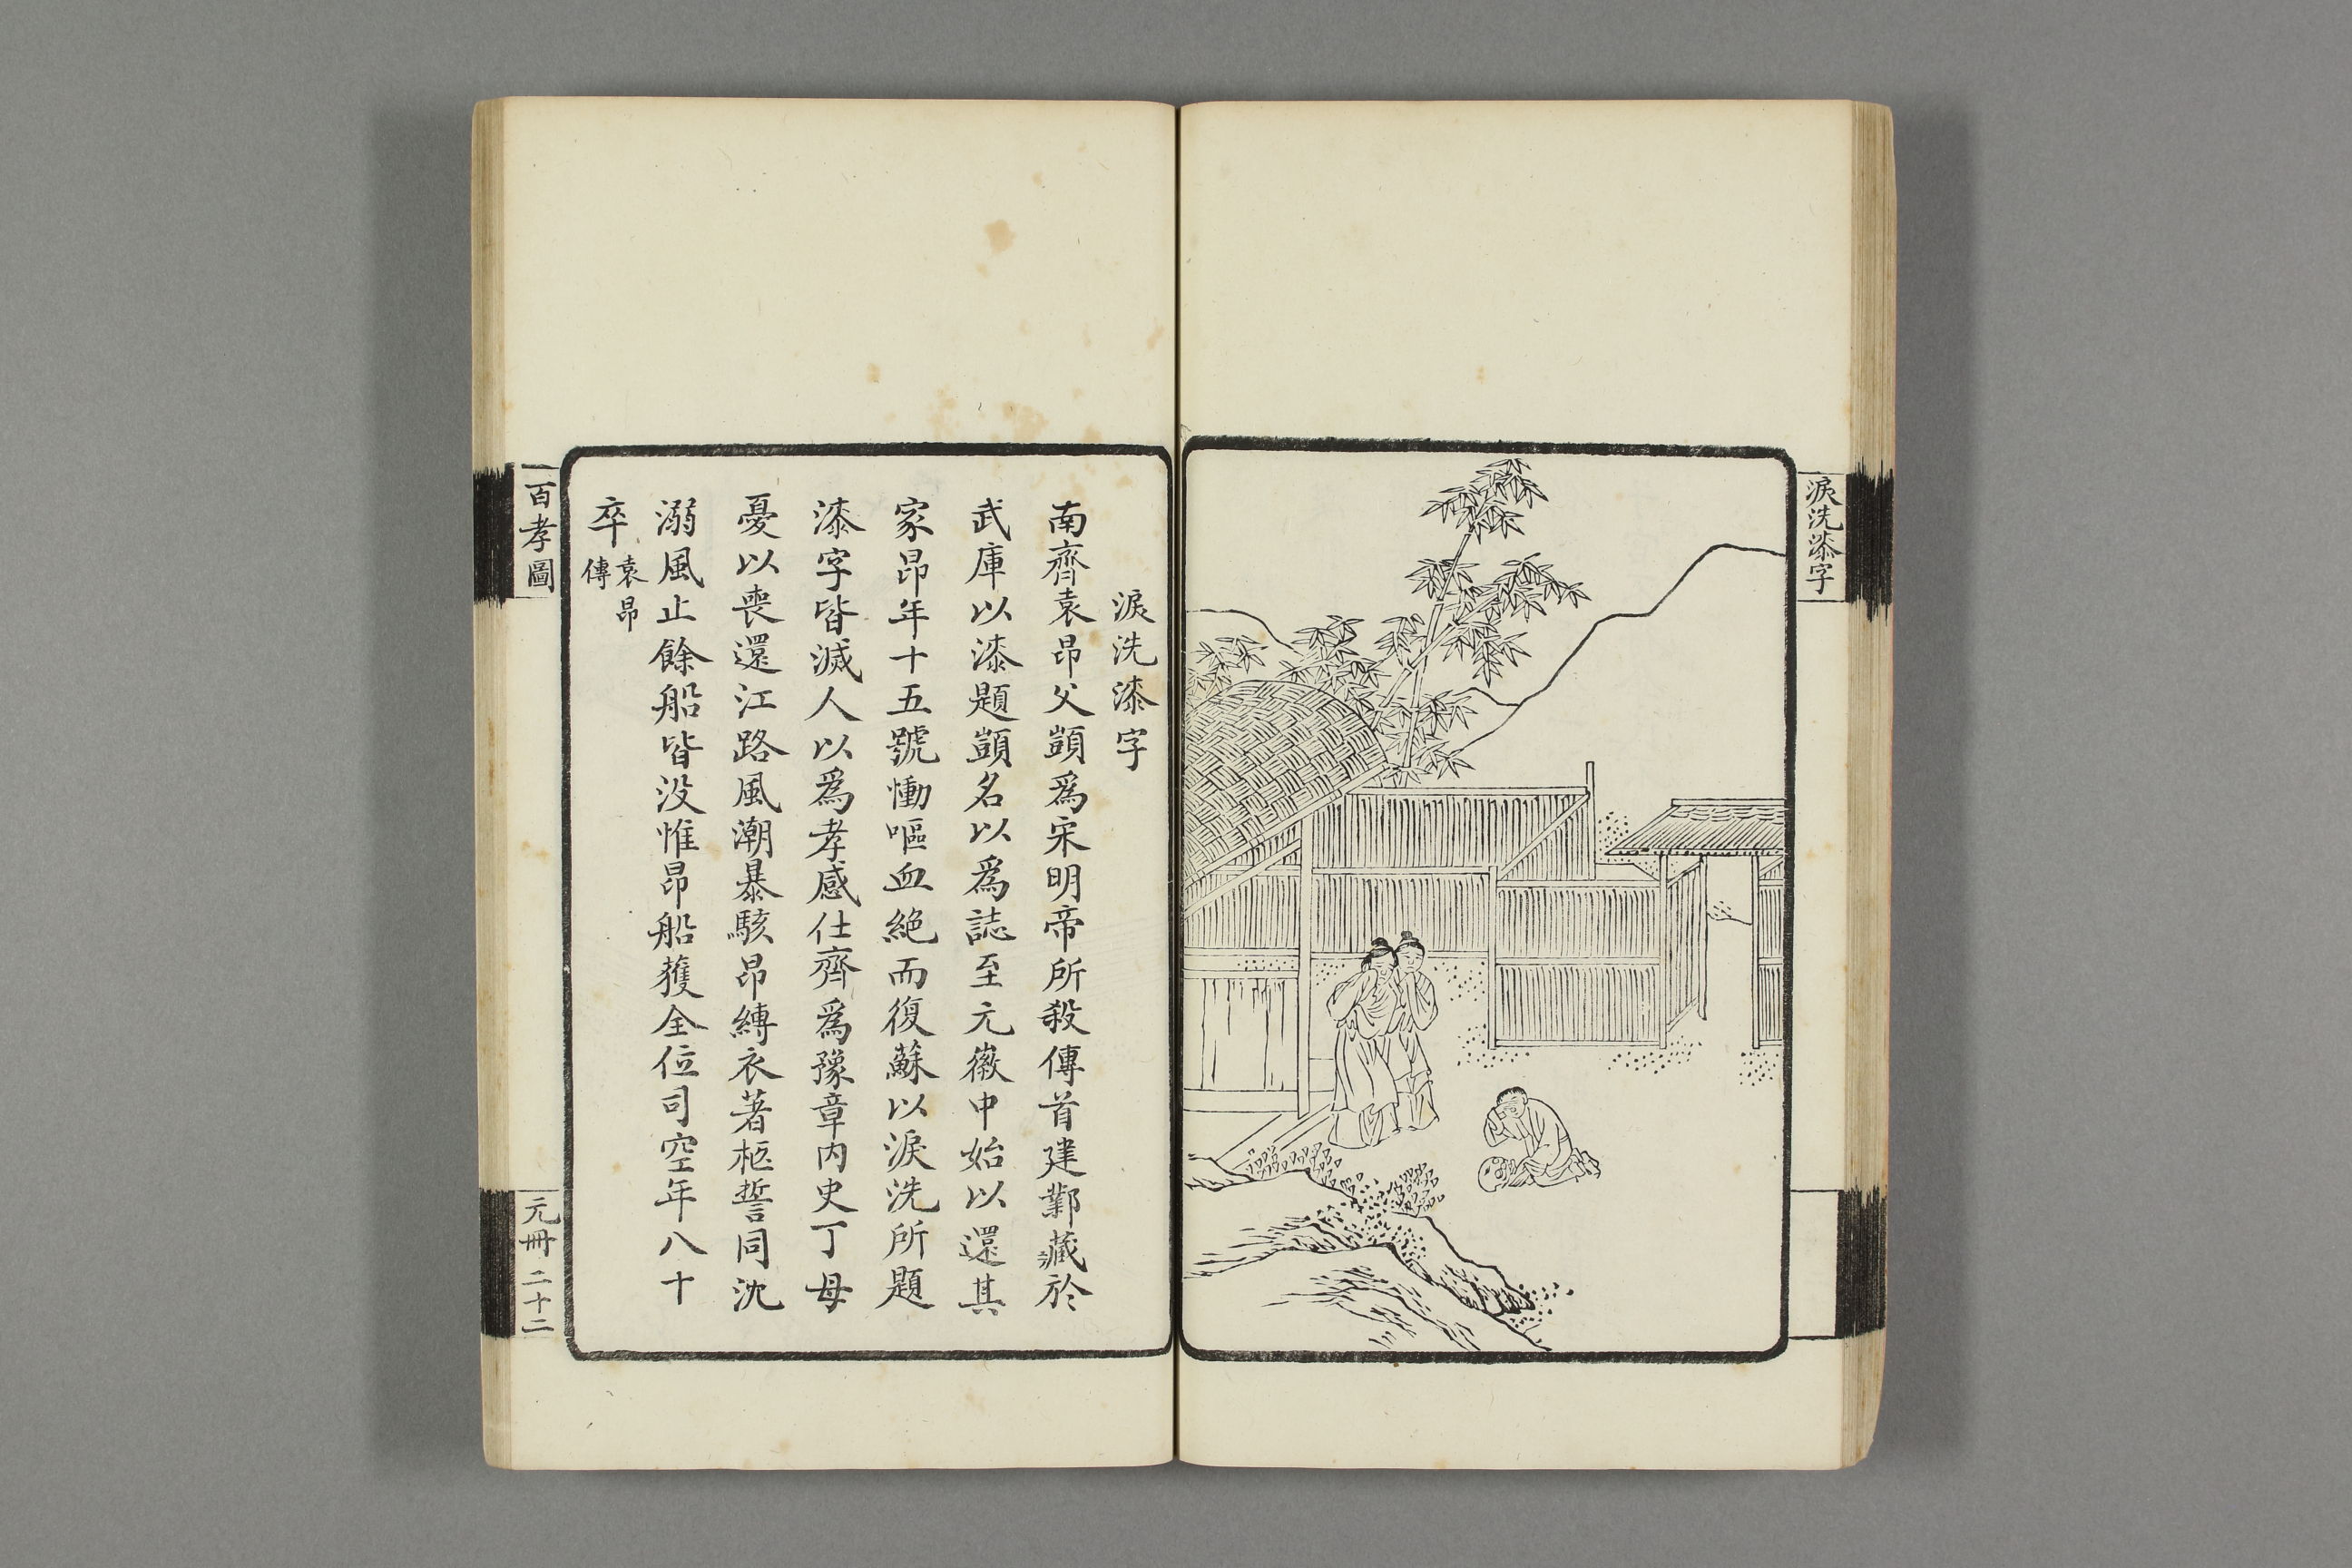 淚洗漆字
淚洗漆字
南齊袁昂父顗爲宋明帝所殺傳首建鄴藏於
武庫以漆題顗名以爲誌至元徽中始以還其
家昂年十五號慟嘔血絕而復蘇以淚洗所題
漆字皆滅人以爲孝感仕齊爲豫章內史丁母
憂以喪還江路風潮暴駭昂縛衣著柩誓同沈
溺風止餘船皆没惟昂船獲全位司空年八十
卒袁昂傳
百孝圖
元冊 二十二